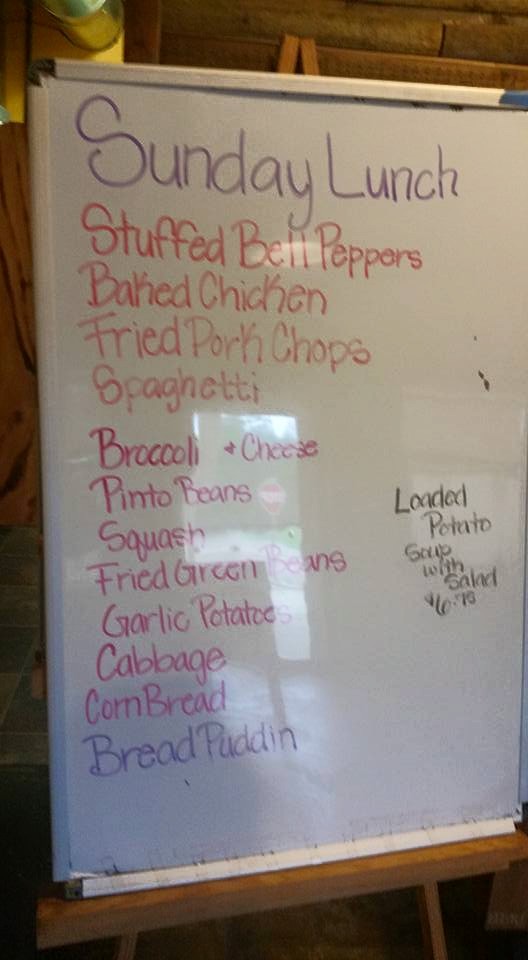 Sunday Lunch
Stuffed Bell Peppers
Baked Chicken
Fried Pork Chops
Spaghetti
Broccoli + Cheese
Pinto Beans
Squash
Fried Green Beans
Garlic Potatoes
Cabbage
Corn Bread
Bread Puddin
Loaded
Potato
Soup
with
Salad
$6.75